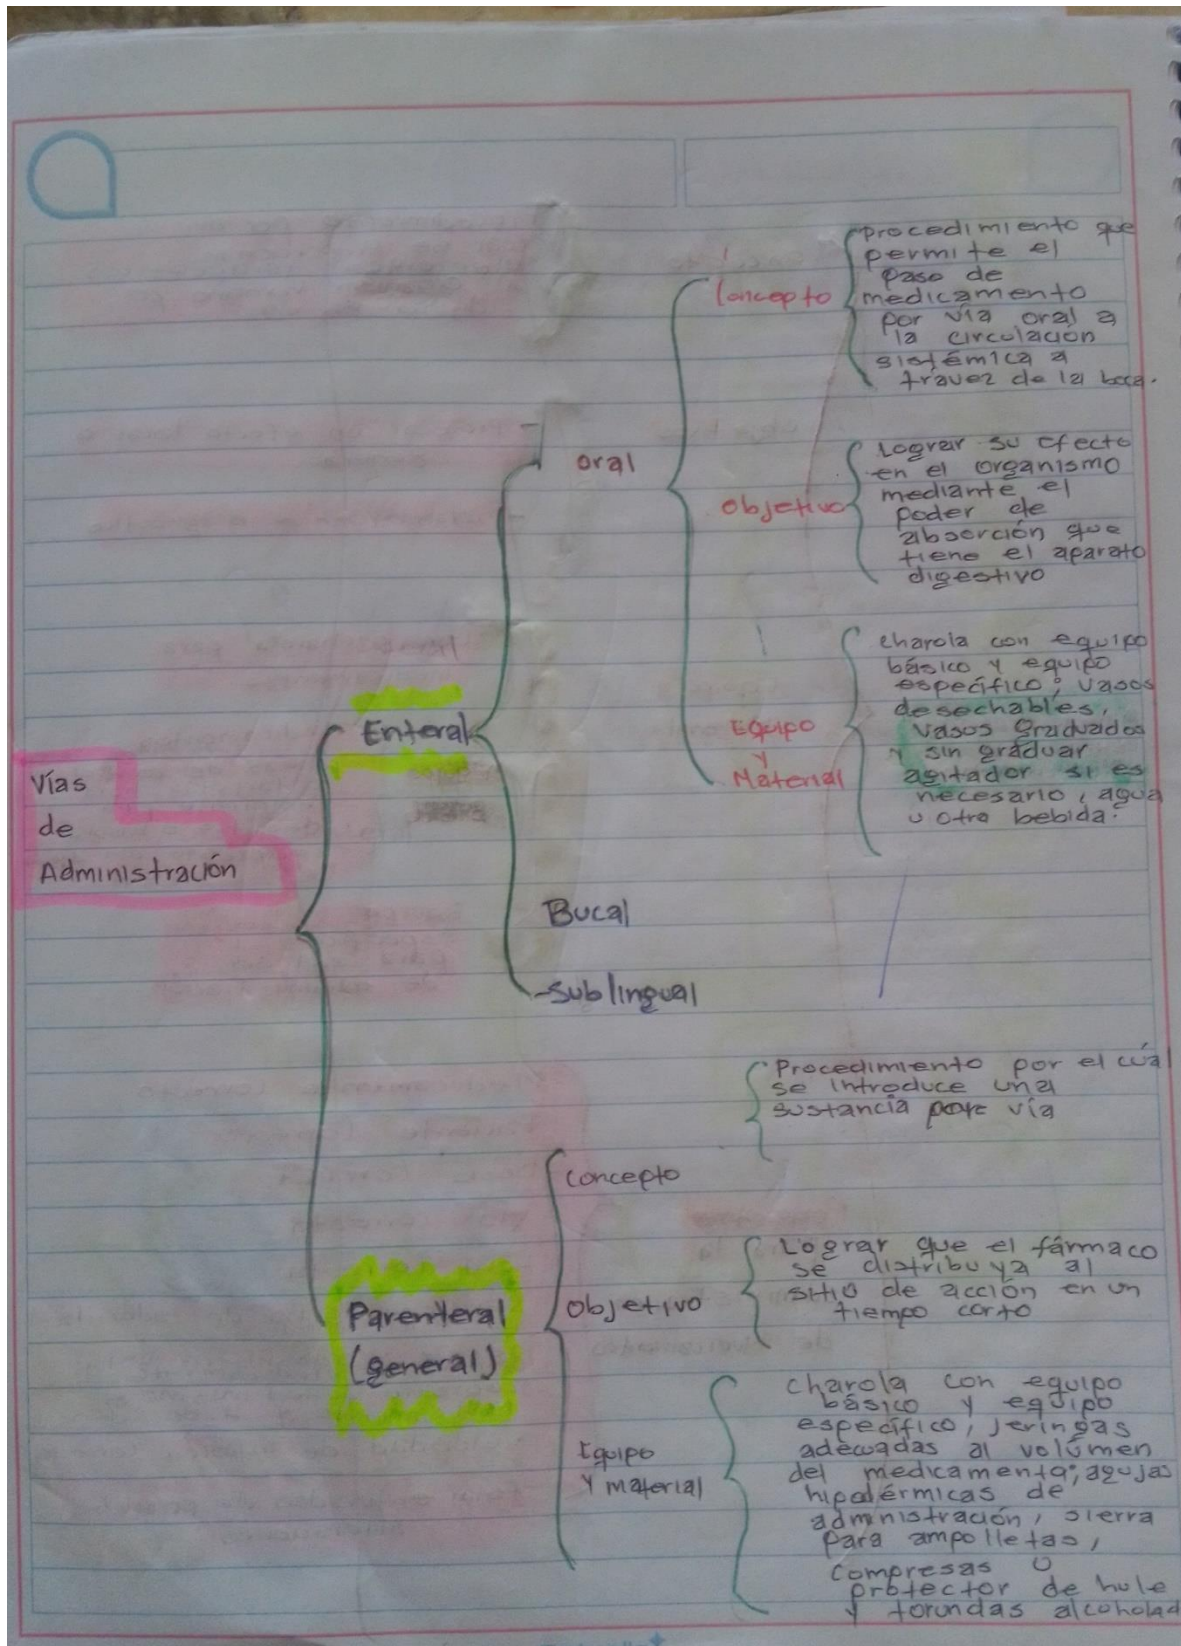 Vías
de
Administración
Enteral
oral
Concepto
procedimiento que
permite el
paso de
medicamento
por vía oral a
la circulación
sistémica a
travez de la boca.
Objetivo
Lograr su efecto
en el organismo
mediante el
poder de
absorción que
tiene el aparato
digestivo
Equipo
y
Material
charola con equipo
básico y equipo
específico; vasos
desechables,
vasos graduados
y sin graduar
agitador si es
necesario, agua
u otra bebida.
Bucal
-Sublingual
Parenteral
(general)
Concepto
Procedimiento por el cúal
se introduce una
sustancia por vía
Objetivo
Lograr que el fármaco
se distribuya al
sitio de acción en un
tiempo corto
Equipo
y material
charola con equipo
básico y equipo
específico, jeringas
adecuadas al volúmen
del medicamento; agujas
hipodérmicas de
administración, sierra
para ampolletas,
compresas o
protector de hule
y torundas alcoholad